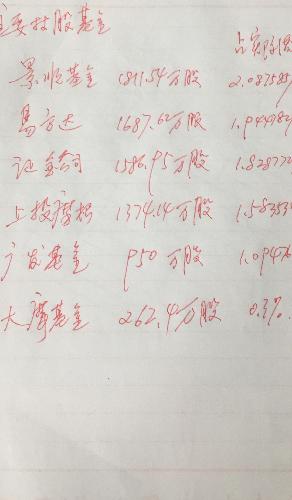 主要持股基金 占实际流
景顺基金 1811.54万股 2.087585
易方达 1687.62万股 1.944782
证金公司 1586.95万股 1.828772
上投摩根 1374.14万股 1.58353
广发基金 950万股 1.09476
大摩基金 262.4万股 0.3%